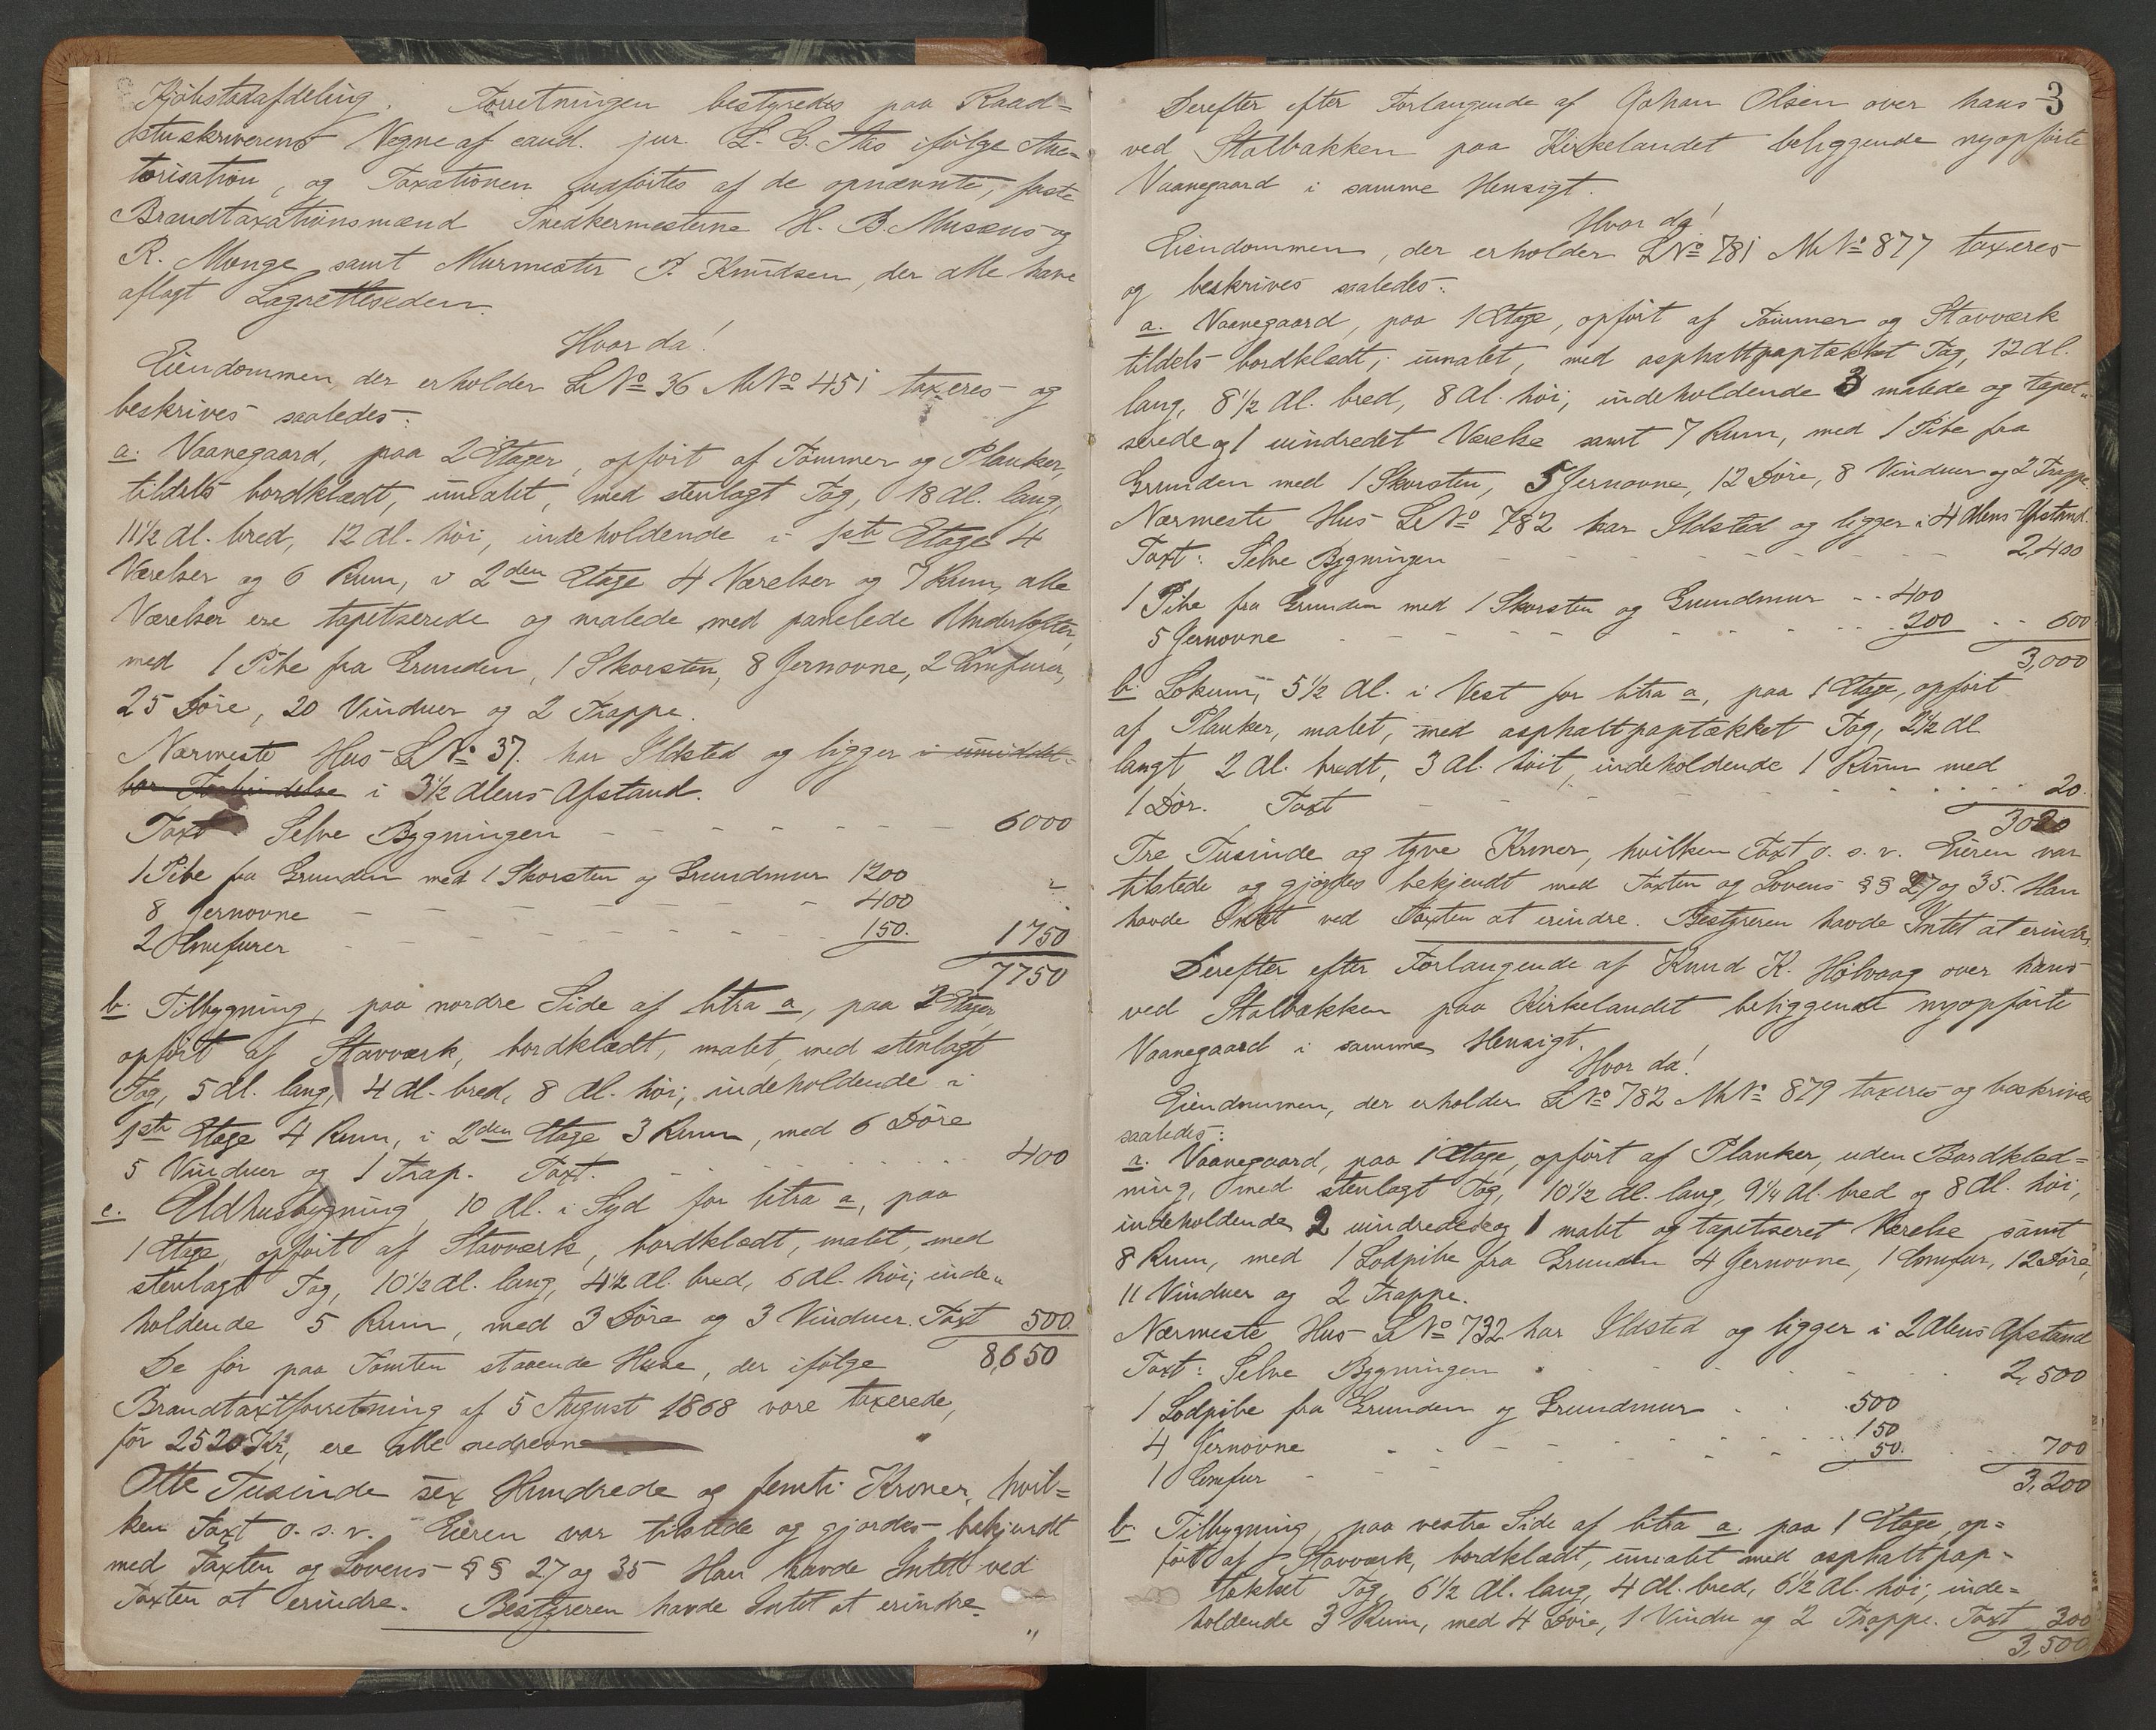 Kjöbstadafdeling. Forretningen bestyredes paa Raad=
stuskriverens Vegne af cand. jur. L. G. Aas ifølge Auc=
torisation, og Taxationen udførtes af de opnævnte, faste
Brandtaxationsmænd Snedkermesterne H. B. Musæus og
R. Monge samt Murmester P. Knudsen, der alle have
aflagt Lagretteseden.
Hvor da!
Eiendommen der erholder L No 36 M No 451 taxeres og
beskrives saaledes:
a. Vaanegaard, paa 2 Etager, opført af Tømmer og Planker,
tildels bordklædt, umalet, med stenlagt Tag, 18 Al. lang,
11½ Al. bred, 12 Al. høi, indeholdende i 1ste Etage 4
Værelser og 6 Rum, i 2den Etage 4 Værelser og 7 Rum, alle
Værelser ere tapetserede og malede med panelede Underlofter,
med 1 Pibe fra Grunden, 1 Skorsten, 8 Jernovne, 2 Comfurer,
25 Døre, 20 Vinduer og 2 Trappe.
Nærmeste Hus L No 37 har Ildsted og ligger i umiddel=
bar Forbindelse i 3½ Alens Afstand.
Taxt: Selve Bygningen 6000
1 Pibe fra Grunden med 1 Skorsten og Grundmur 1200
8 Jernovne 400
2 Comfurer 150. 1750
7750
b. Tilbygning, paa nordre Side af litra a, paa 2 Etager,
opført af Stavværk, bordklædt, malet, med stenlagt
Tag, 5 Al. lang, 4 Al. bred, 8 Al. høi, indeholdende i
1ste Etage 4 Rum, i 2den Etage 3 Rum, med 6 Døre
5 Vinduer og 1 Trap. Taxt. 400
c. Udhusbygning, 10 Al. i Syd for litra a, paa
1 Etage, opført af Stavværk, bordklædt, malet, med
stenlagt Tag, 10½ Al. lang, 4½ Al. bred, 6 Al. høi, inde=
holdende 5 Rum, med 3 Døre og 3 Vinduer. Taxt 500.
De før paa Tomten staaende Huse, der ifølge 8,650
Brandtaxtforretning af 5 August 1868 vare taxerede,
for 2520 Kr, ere alle nedrevne
Otte Tusinde sex Hundrede og femti Kroner, hvil=
ken Taxt o. s. v. Eieren var tilstede og gjordes bekjendt
med Taxten og Lovens §§ 27 og 35 Han havde Intet ved
Taxten at erindre. Bestyreren havde Intet at erindre.
3
Derefter efter Forlangende af Johan Olsen over hans
ved Stalbakken paa Kirkelandet beliggende nyopførte
Vaanegaard i samme Hensigt.
Hvor da!
Eiendommen, der erholder L No 781 M No 877 taxeres
og beskrives saaledes:
a. Vaanegaard, paa 1 Etage, opført af Tømmer og Stavværk
tildels bordklædt, umalet, med asphaltpaptækket Tag, 12 Al.
lang, 8½ Al. bred, 8 Al. høi, indeholdende 3 malede og tapet=
serede og 1 uindredet Værelse samt 7 Rum, med 1 Pibe fra
Grunden med 1 Skorsten, 5 Jernovne, 12 Døre, 8 Vinduer og 2 Trappe.
Nærmeste Hus L No 782 har Ildsted og ligger i 4 Alens Afstand.
Taxt: Selve Bygningen 2,400
1 Pibe fra Grunden med 1 Skorsten og Grundmur 400
5 Jernovne 200 600
3,000
b. Lokum, 5½ Al. i Vest for litra a, paa 1 Etage, opført
af Planker, malet, med asphaltpaptækket Tag, 2½ Al
langt 2 Al. bredt, 3 Al. høit, indeholdende 1 Rum med
1 Dør. Taxt 20.
3020
Tre Tusinde og tyve Kroner, hvilken Taxt o. s. v. Eieren var
tilstede og gjordes bekjendt med Taxten og Lovens §§ 27 og 35. Han
havde Intet ved Taxten at erindre. Bestyreren havde Intet at erindre.
Derefter efter Forlangende af Knud K. Holvaag over hans
ved Stalbakken paa Kirkelandet beliggende nyopførte
Vaanegaard i samme Hensigt.
Hvor da!
Eiendommen, der erholder L No 782 M No 879 taxeres og beskrives
saaledes:
a. Vaanegaard, paa 1 Etage, opført af Planker, uden Bordklæd=
ning, med stenlagt Tag, 10½ Al. lang, 9¼ Al. bred og 8 Al. høi,
indeholdende 2 uindredede og 1 malet og tapetseret Værelse samt
8 Rum, med 1 Lodpibe fra Grunden 4 Jernovne, 1 Comfur, 12 Døre,
11 Vinduer og 2 Trappe.
Nærmeste Hus L No 732 har Ildsted og ligger i 2 Alens Afstand
Taxt: Selve Bygningen 2,500
1 Lodpibe fra Grunden og Grundmur 500
4 Jernovne 150
1 Comfur 50. 700
3,200
b. Tilbygning, paa vestre Side af litra a. paa 1 Etage, op=
ført af Stavværk, bordklædt, umalet med asphaltpap=
tækket Tag, 6½ Al. lang, 4 Al. bred, 6½ Al. høi, inde=
holdende 3 Rum, med 4 Døre, 1 Vindu og 2 Trappe. Taxt 300
3,500